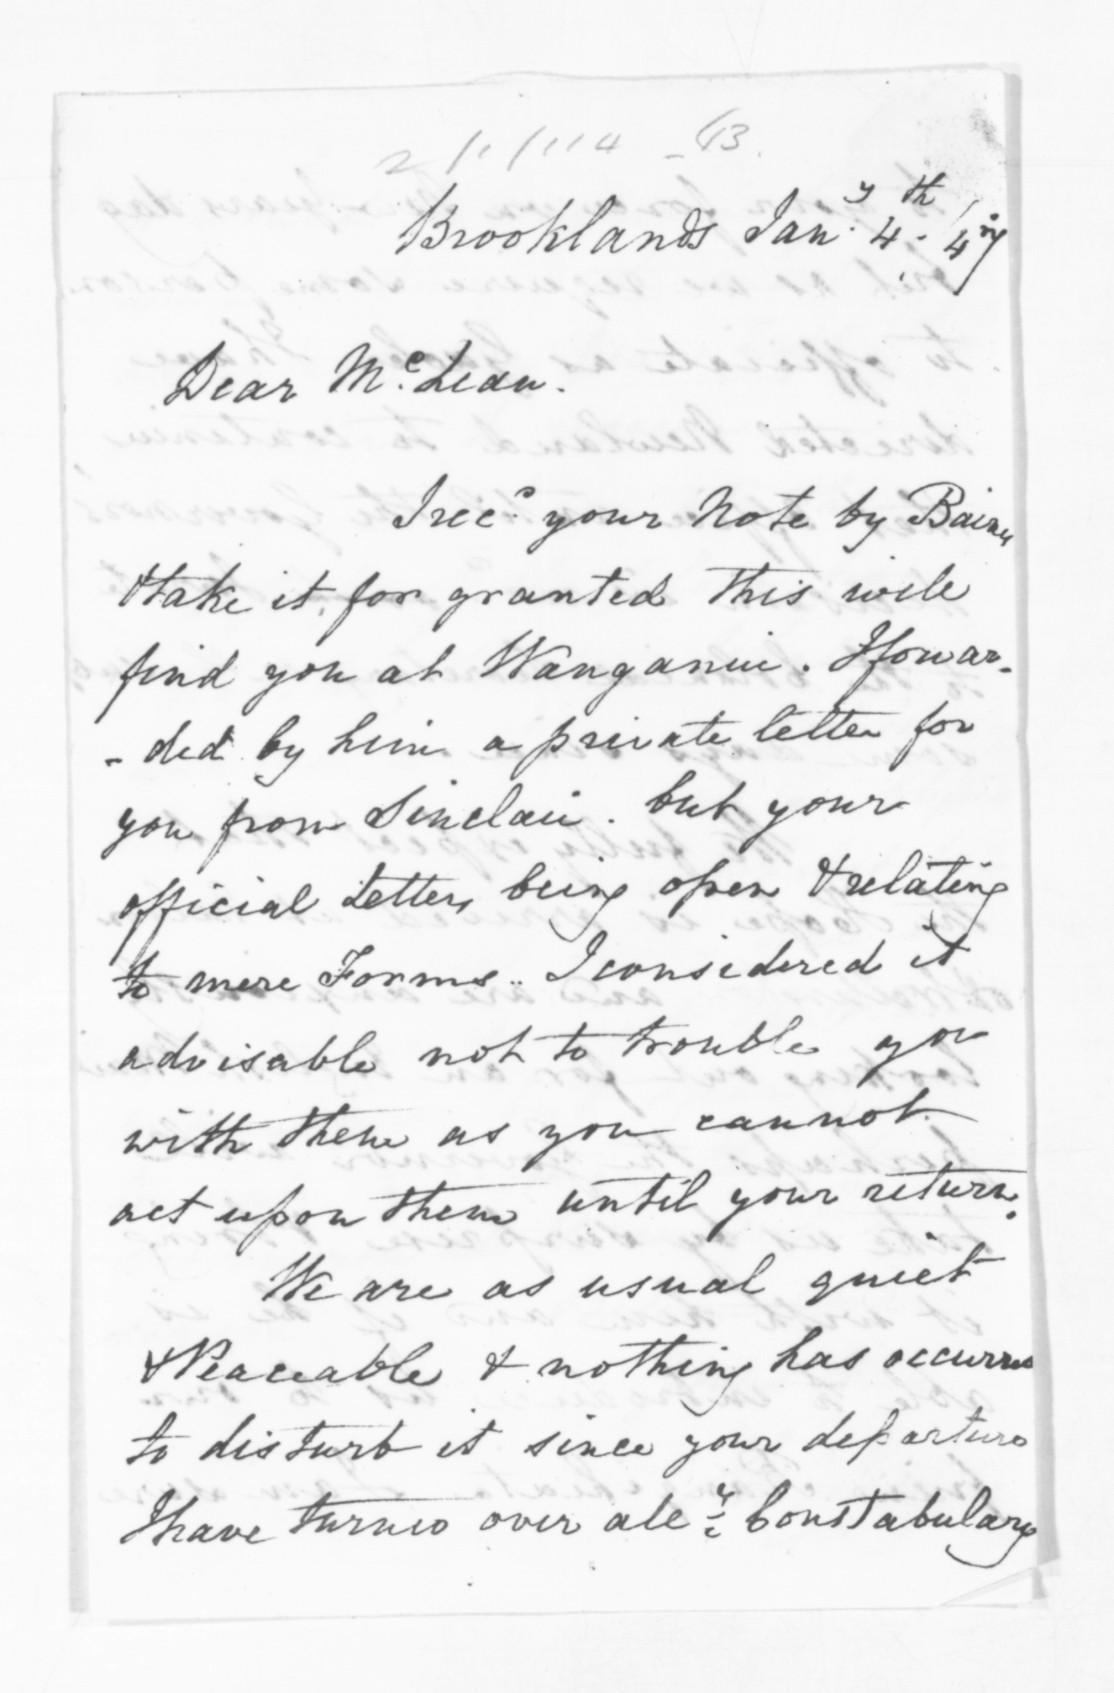 Brooklands Jany. 4th. /47
Dear McLean.
I rec.d your Note by
& take it for granted this will
find you at Wanganui. I forwar-
- ded by him a private letter for
you from Sinclair. but your
official Letters being open & relating
to mere Forms.. I considered it
advisable not to trouble you
with them as you cannot
act upon them until your return.
We are as usual quiet
& Peaceable & nothing has occurred
to disturb it since your departure
I have turned over all yr. Constabulary